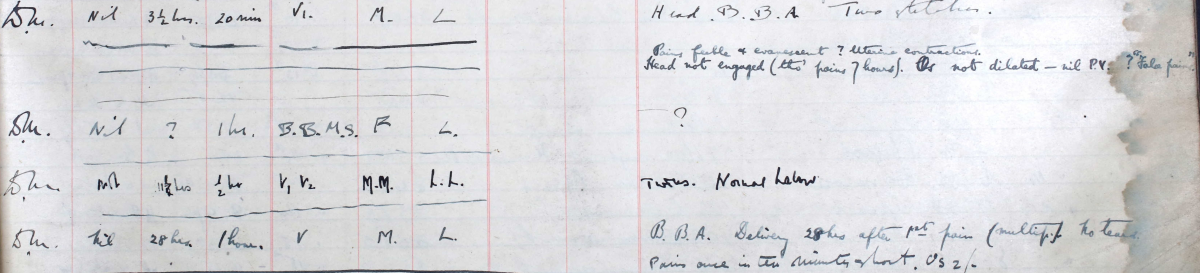 Dm. Nil 3½ hrs. 20 min V1. M. L Head B.B.A Two stitches.
Pains feeble & evanescent ? Uterine contractions.
Head not engaged (tho' pains 7 hours). Os not dilated — nil P.V. ? "False pains"
?
Dm. Nil ? 1 hr. B.B.M.S. F L.
Dm. Nil 11½ hrs ½ hr V1 V2 M.M. L.L. Twins. Normal Labour
Dm. Nil 28 hrs 1 hour. V M. L. B.B.A. Delivery 28 hrs after 1st pain (multip). No tears.
Pains once in ten minutes & short. Os 2/-